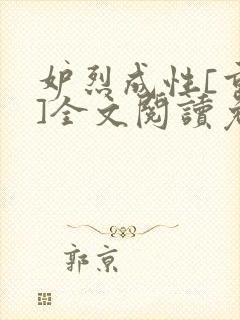 妒烈成性[重
]全文閱讀老
郭京